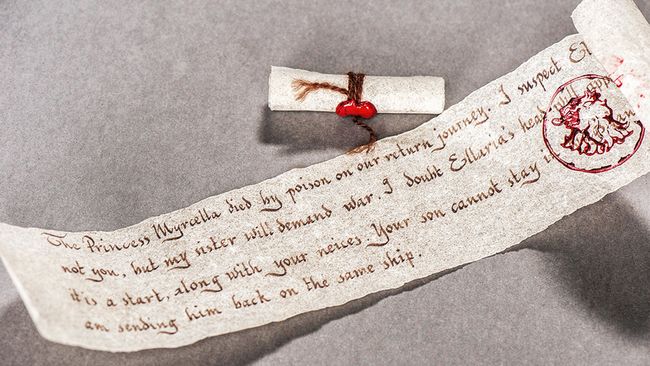 The Princess Myrcella died by poison on our return journey. I suspect Ell
not you, but my sister will demand war. I doubt Ellaria's head will
it is a start, along with your neices. Your son cannot stay i
am sending him back on the same ship.